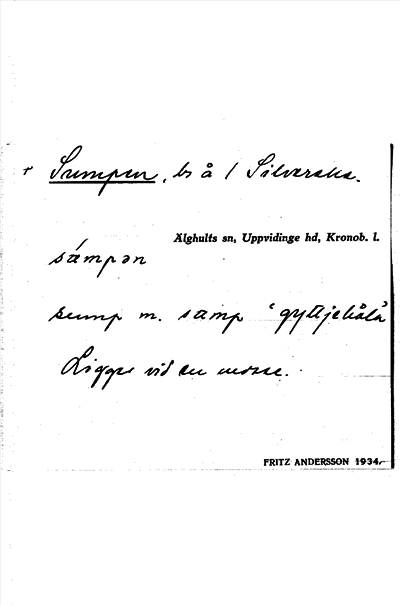 + Sumpen, ls å / Silverska.
Älghults sn, Uppvidinge hd, Kronob. l.
sámpən
sump m. samp 'gyttjehåla'
Ligger vid en mosse.
FRITZ ANDERSSON 1934.